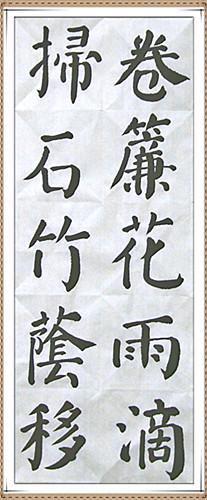 卷簾花雨滴
掃石竹蔭移